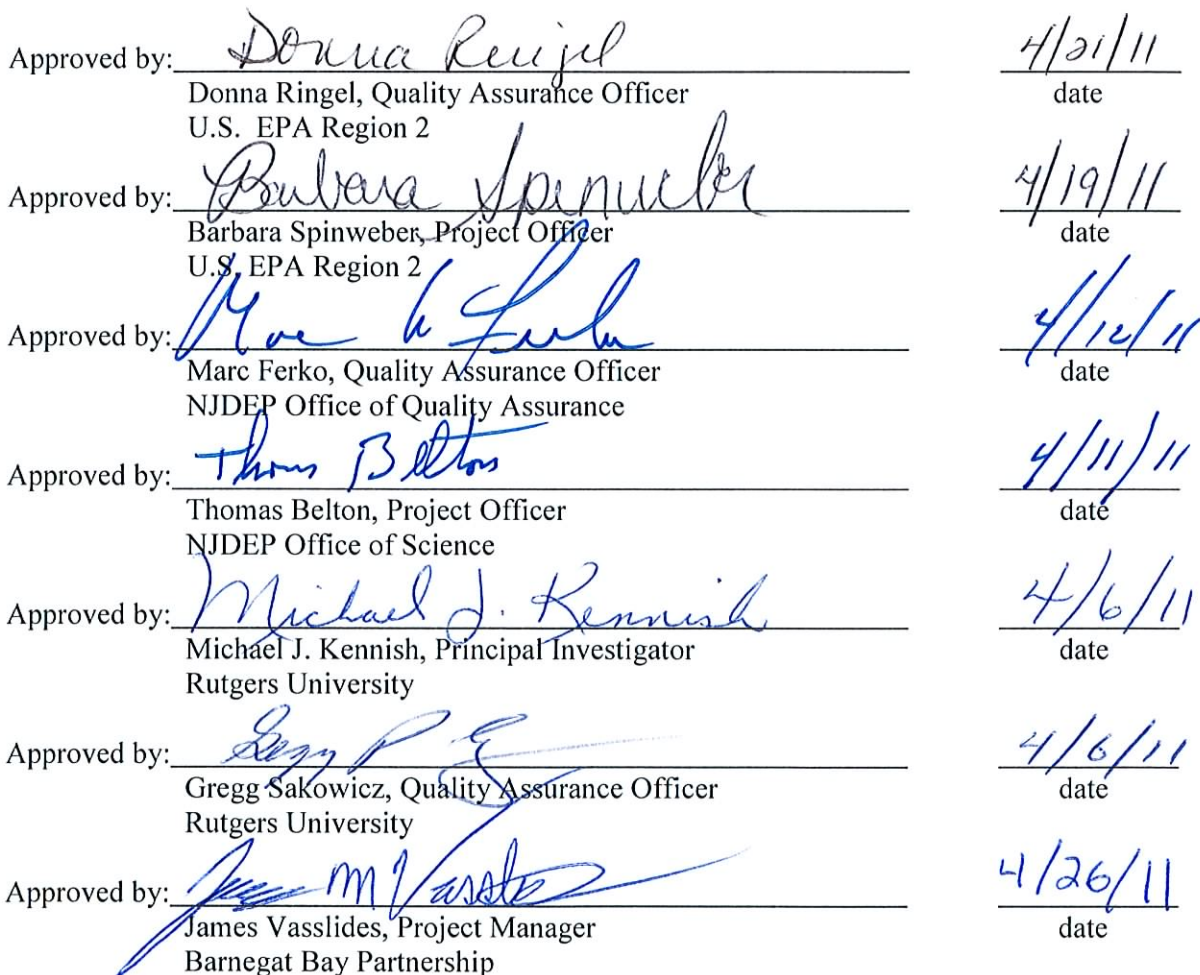 Approved by: Donna Ringel 4/21/11
Donna Ringel, Quality Assurance Officer date
U.S. EPA Region 2
Approved by: Barbara Spinweber 4/19/11
Barbara Spinweber, Project Officer date
U.S. EPA Region 2
Approved by: 4/12/11
Marc Ferko, Quality Assurance Officer date
NJDEP Office of Quality Assurance
Approved by: Thomas Belton 4/11/11
Thomas Belton, Project Officer date
NJDEP Office of Science
Approved by: Michael J. Kennish 4/6/11
Michael J. Kennish, Principal Investigator date
Rutgers University
Approved by: 4/6/11
Gregg Sakowicz, Quality Assurance Officer date
Rutgers University
Approved by: 4/26/11
James Vasslides, Project Manager date
Barnegat Bay Partnership